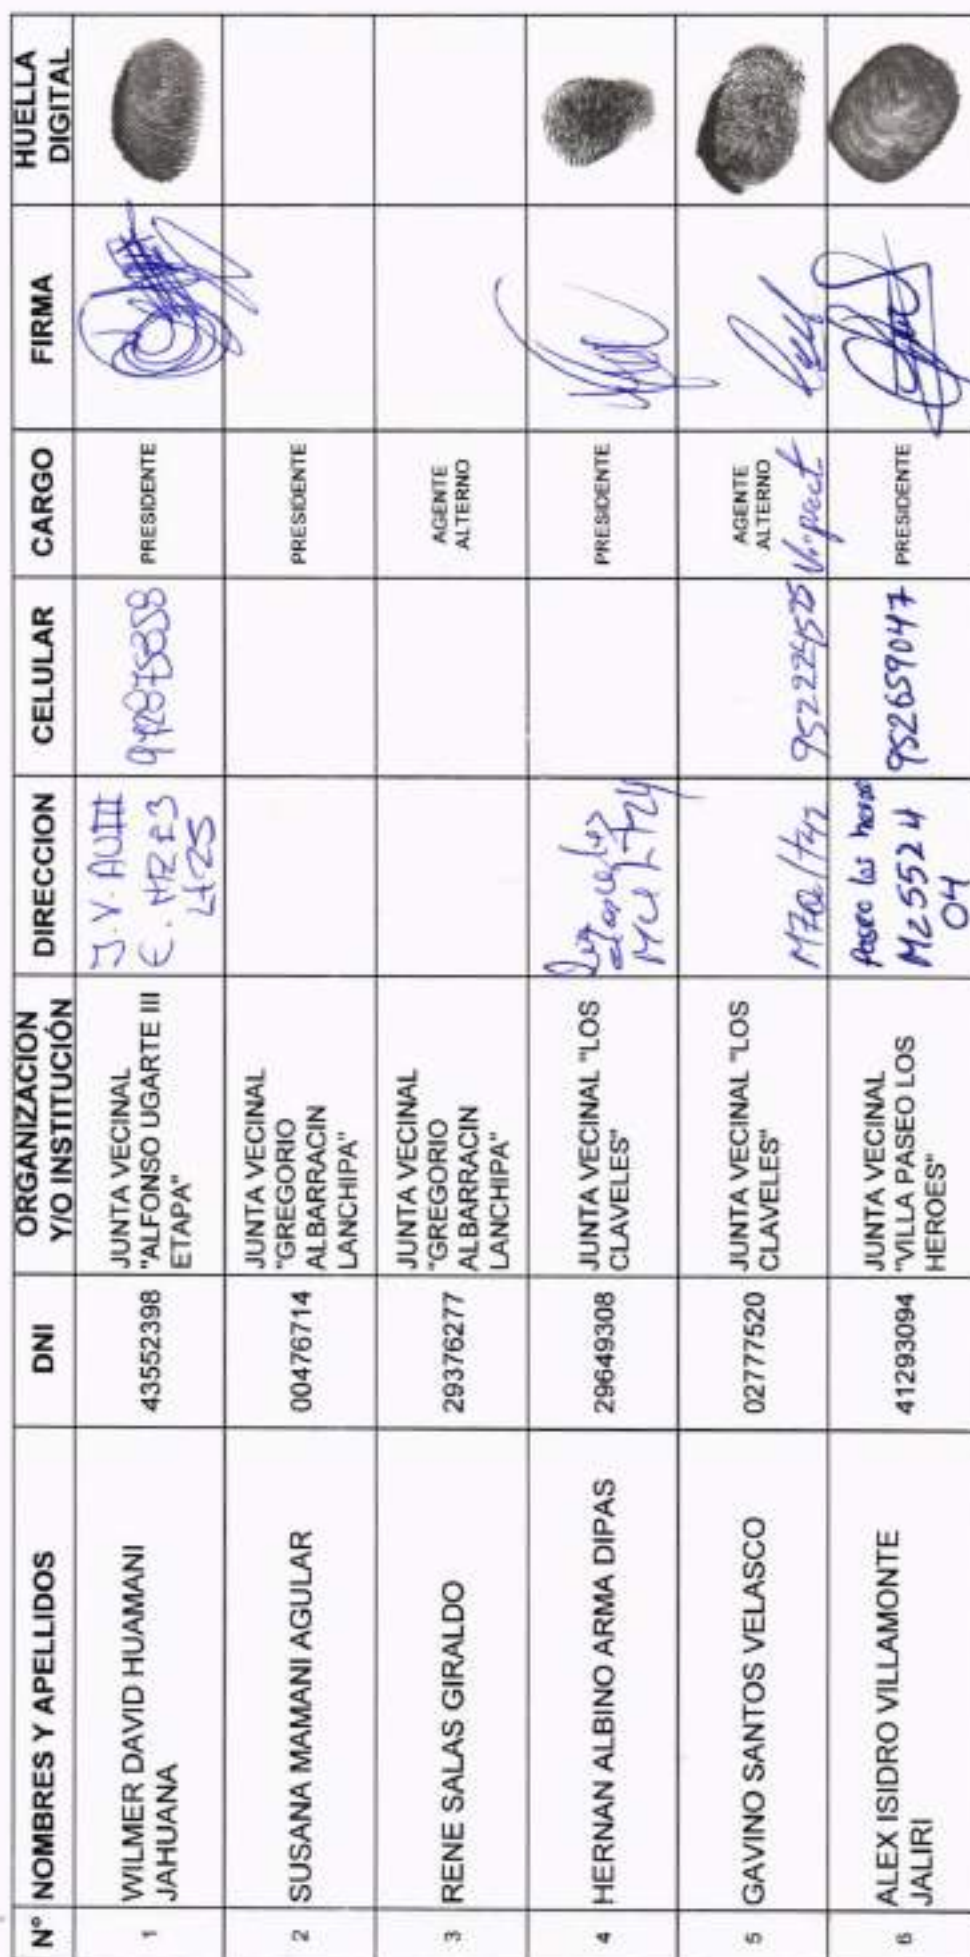 N° NOMBRES Y APELLIDOS DNI ORGANIZACION Y/O INSTITUCIÓN DIRECCION CELULAR CARGO FIRMA HUELLA DIGITAL
1 WILMER DAVID HUAMANI JAHUANA 43552398 JUNTA VECINAL "ALFONSO UGARTE III ETAPA" J.V. AUIII E. MZ E3 Lt 25 PRESIDENTE
2 SUSANA MAMANI AGULAR 00476714 JUNTA VECINAL "GREGORIO ALBARRACIN LANCHIPA" PRESIDENTE
3 RENE SALAS GIRALDO 29376277 JUNTA VECINAL "GREGORIO ALBARRACIN LANCHIPA" AGENTE ALTERNO
4 HERNAN ALBINO ARMA DIPAS 29649308 JUNTA VECINAL "LOS CLAVELES" PRESIDENTE
5 GAVINO SANTOS VELASCO 02777520 JUNTA VECINAL "LOS CLAVELES" AGENTE ALTERNO
6 ALEX ISIDRO VILLAMONTE JALIRI 41293094 JUNTA VECINAL "VILLA PASEO LOS HEROES" Paseo los heroes 952659047 PRESIDENTE